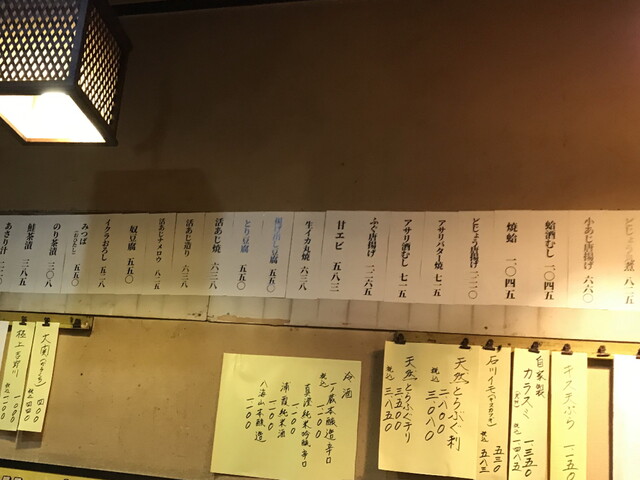 小あじ唐揚げ 六六〇
蛤酒むし 一〇四五
焼蛤 一〇四五
どじょう唐揚げ
アサリバター焼 七一五
アサリ酒むし 七一五
ふぐ唐揚げ
甘エビ
生イカ丸焼 六三八
揚げ出し豆腐 五五〇
とり豆腐 五五〇
活あじ焼 六三八
活あじ造り 六三八
活あじナメロウ
奴豆腐 五五〇
イクラおろし
みつば (おひたし) 五五〇
のり茶漬
鮭茶漬
あさり汁
キス天ぷら
自家製
カラスミ
税込 一四八五
石川イモ
五三〇
税込 五八三
天然とらふぐ刺
二八〇〇
税込 三〇八〇
天然とらふぐテリ
三五〇〇
税込 三八五〇
冷酒
一ノ蔵本醸造辛口
税込 一一〇〇
真澄純米吟醸辛口
一一〇〇
浦霞純米酒
一一〇〇
八海山本醸造
一一〇〇
四〇〇
税込 四四〇
極上吉野川
税込 一一〇〇